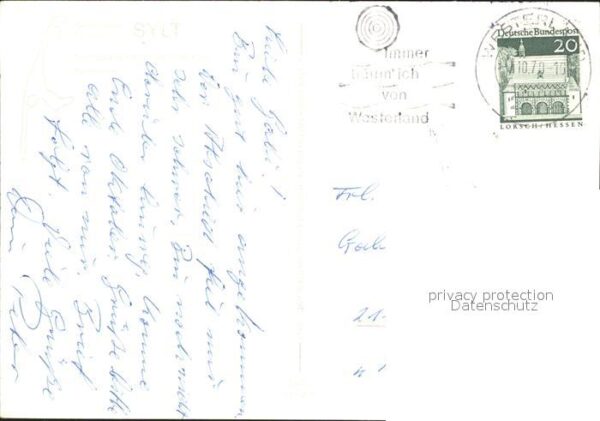 SYLT
Liebe Gabi!
Bin gut hier angekommen.
Der Abschied fiel mir
sehr schwer. Bin noch nicht
Komme
Ende Oktober. Grüße bitte
alle von mir. Brief
folgt. Viele Grüße
Dein Peter
Immer
träum' ich
von
Westerland
WESTERLAND
10.70
Deutsche Bundespost
20
LORSCH/HESSEN
Frl.
Gabi
21
privacy protection
Datenschutz